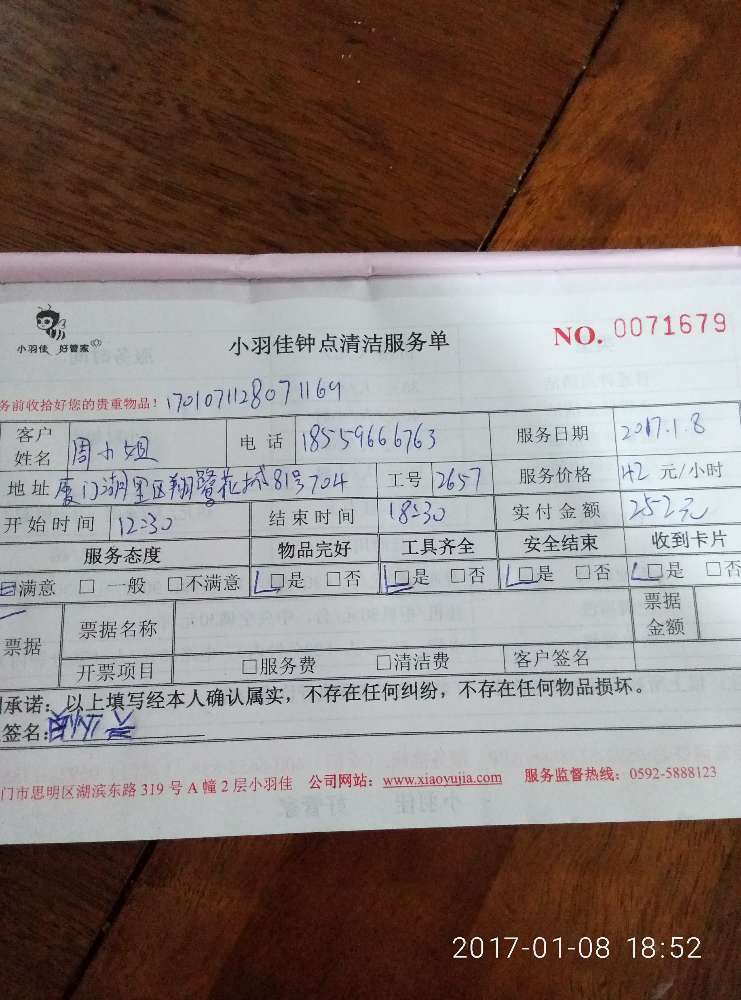 小羽佳 好管家
小羽佳钟点清洁服务单
NO. 0071679
务前收拾好您的贵重物品！170107112807 1169
客户姓名 周小姐 电话 18559666763 服务日期 2017.1.8
地址 厦门湖里区翔鹭花城81号704 工号 2657 服务价格 42 元/小时
开始时间 12:30 结束时间 18:30 实付金额 252元
服务态度 物品完好 工具齐全 安全结束 收到卡片
□满意 □一般 □不满意 □是 □否 □是 □否 □是 □否 □是 □否
票据 票据名称 票据金额
开票项目 □服务费 □清洁费 客户签名
承诺：以上填写经本人确认属实，不存在任何纠纷，不存在任何物品损坏。
签名:
门市思明区湖滨东路 319 号 A 幢 2 层小羽佳 公司网站：www.xiaoyujia.com 服务监督热线：0592-5888123
2017-01-08 18:52